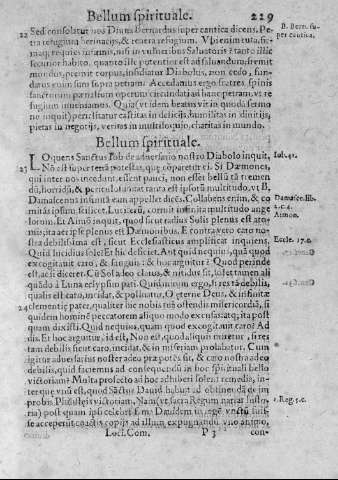 Bellum spirituale. 229
22 Sed consolatur nos Diuus Bernardus super cantica dicens. Pe-
tra refugium herinacijs, & reuera refugium. Vbi enim tuta, fir-
maq; requies infirmis, nisi in vulneribus Saluatoris? tanto illic
securior habito, quanto ille potentior est ad saluandum. fremit
mundus, premit corpus, insidiatur Diabolus, non cedo, fun-
datus enim sum supra petram. Accedamus ergo fratres, spinis
sanctorum parua
sugium inuensamus. Quia (vt idem beatus vir in quodā sermo
ne inquit) periclitatur castitas in delicijs, humilitas in diuitijs,
pietas in negotijs, veritas in multiloquio, charitas in mundo.
B. Bern. su-
per cantica.
Bellum spirituale.
23 LOquens Sanctus Iob de aduersario nostro Diabolo inquit,
Nō est super terrā potestas, quę cōparetur ei. Si Dæmones,
qui inter nos incedunt essent pauci, non esset bellū tā tremen
dū, horridū, & periculosum: at tanta est ipsorū multitudo, vt B.
Damascenus infinitā eam appellet dicēs. Collabens enim, & co
mitās ipsum scilicet Luciferū, corruit infinita multitudo ange
lorum. Et Aimō inquit, quod sicut radius Solis plenus est ato
mis, ita aer iste plenus est Dæmonibus. E contra vero caro no-
stra debilissima est, sicut Ecclesiasticus amplificat inquiens.
Quid lucidius sole? Et hic deficiet. Aut quid nequius, quā quod
excogitauit caro, & sanguis? & hoc arguitur? Quod perinde
est, ac si diceret. Cū Sol adeo clarus, & nitidus sit, solet tamen ali
quādo à Luna eclypsim pati. Quidnam ergo, si res tā debilis,
qualis est caro, incidat, & polluatur, O æterne Deus, & infinitæ
24 clementię pater, qualiter hic nobis tuā ostendis misericordiā, si
quidem homine peccatorem aliquo modo excusasatq; ita post
quam dixisti. Quid nequius, quam quod excogitauit caro? Ad
dis. Et hoc arguitur, id est, Non est quod aliquis miretur, si res
tam debilis sicut caro, incidat, & in miseriam prolabatur. Cum
igitur aduersarius noster adeo præpotēs sit, & caro nostra adeo
debilis, quid faciemus ad consequendū in hoc spirituali bello
victoriam? Multa profecto ad hoc adhiberi solent remedia, in-
ter quæ vnū est, quod Sāctus Dauid habuit ad obtinendā de im
probis Philistęis victoriam, Nam (vt sacra Regum narrat histo-
ria) post quam ipsi celebrē famā Dauidem in regē vnctū fuis-
se acceperūt coactis copijs ad illum expugnandū vno animo,
Iob. 41.
Damasce. lib.
2. c. 4.
Aimon.
Eccle. 17. c.
2. Reg. 5. c.
Loci. Com. P 3 con-